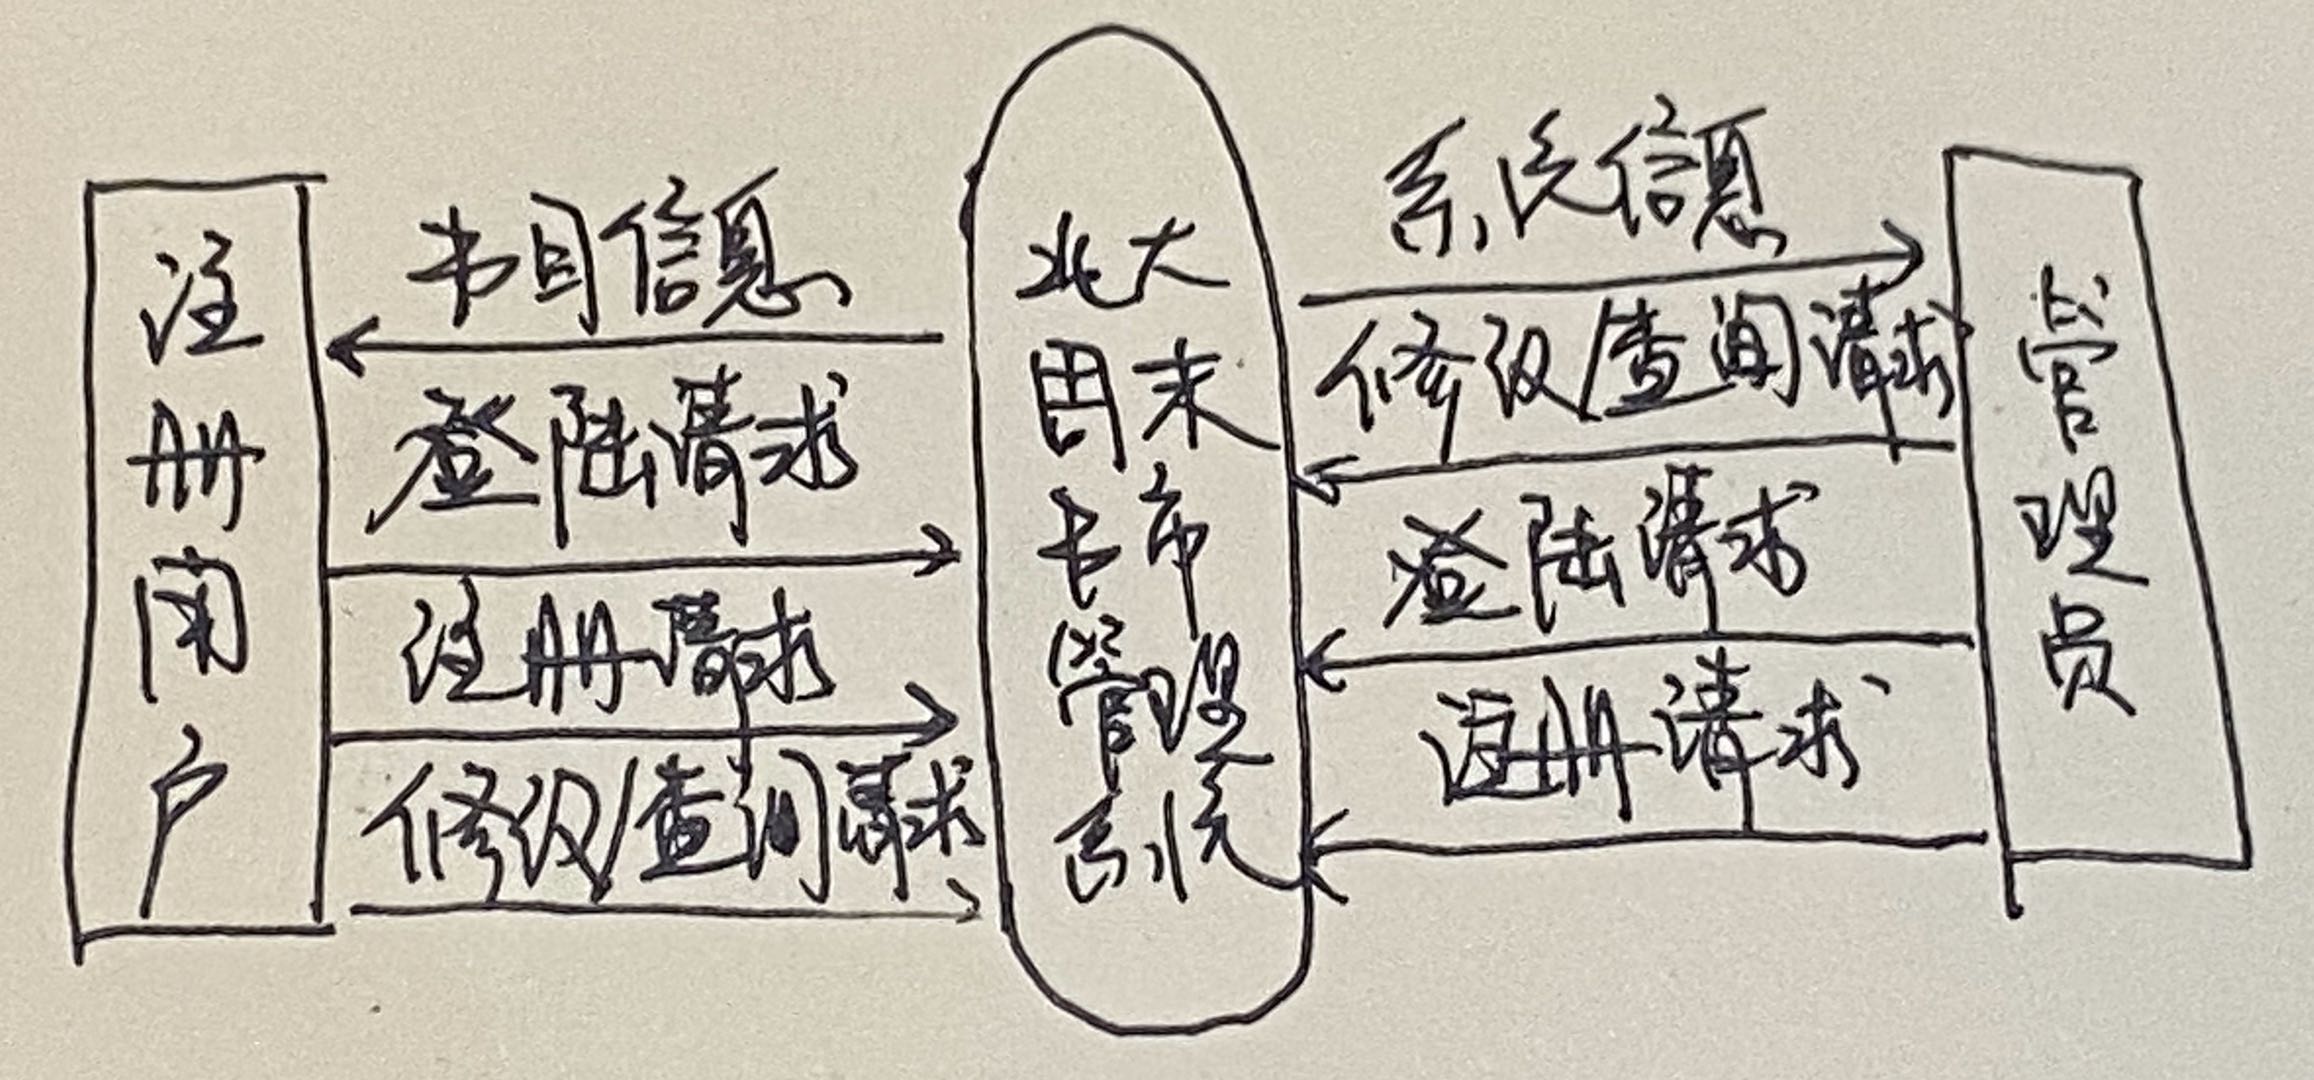 注册用户
书目信息
登陆请求
注册请求
修改/查询请求
北大
周末
书市
管理
系统
系统信息
修改/查询请求
登陆请求
注册请求
管理员